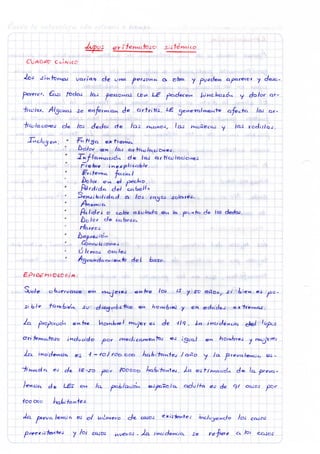 Lupus eritematoso sistémico
CUADRO CLÍNICO
Los síntomas varían de una persona a otra y pueden aparecer y desa-
parecer. Casi todas las personas con LE padecen hinchazón y dolor ar-
ticular. Algunas se enferman de artritis. LE generalmente afecta las ar-
ticulaciones de los dedos de las manos, las muñecas y las rodillas.
Incluyen: • Fatiga extrema
• Dolor en las articulaciones
• Inflamación de las articulaciones
• Fiebre inexplicable
• Eritema facial
• Dolor en el pecho
• Pérdida del cabello
• Sensibilidad a los rayos solares
• Anemia
• Palidez o color azulado en la punta de los dedos
• Dolor de cabeza
• Mareos
• Depresión
• Convulsiones
• Úlceras orales
• Agrandamiento del bazo.
EPIDEMIOLOGÍA:
Suele observarse en mujeres entre los 15 y 50 años, si bien es po-
sible también su diagnóstico en hombres y en edades extremas.
La proporción entre hombre/mujer es de 1/9. La incidencia del lupus
eritematoso inducido por medicamentos es igual en hombres y mujeres
La incidencia es 1-10/100.000 habitantes/año y la prevalencia es-
timada es de por 100000 habitantes. La estimación de la preva-
lencia de LES en la población española adulta es de 91 casos por
100 000 habitantes
La prevalencia es el número de casos existentes incluyendo los casos
preexistentes y los casos nuevos. La incidencia se refiere a los casos